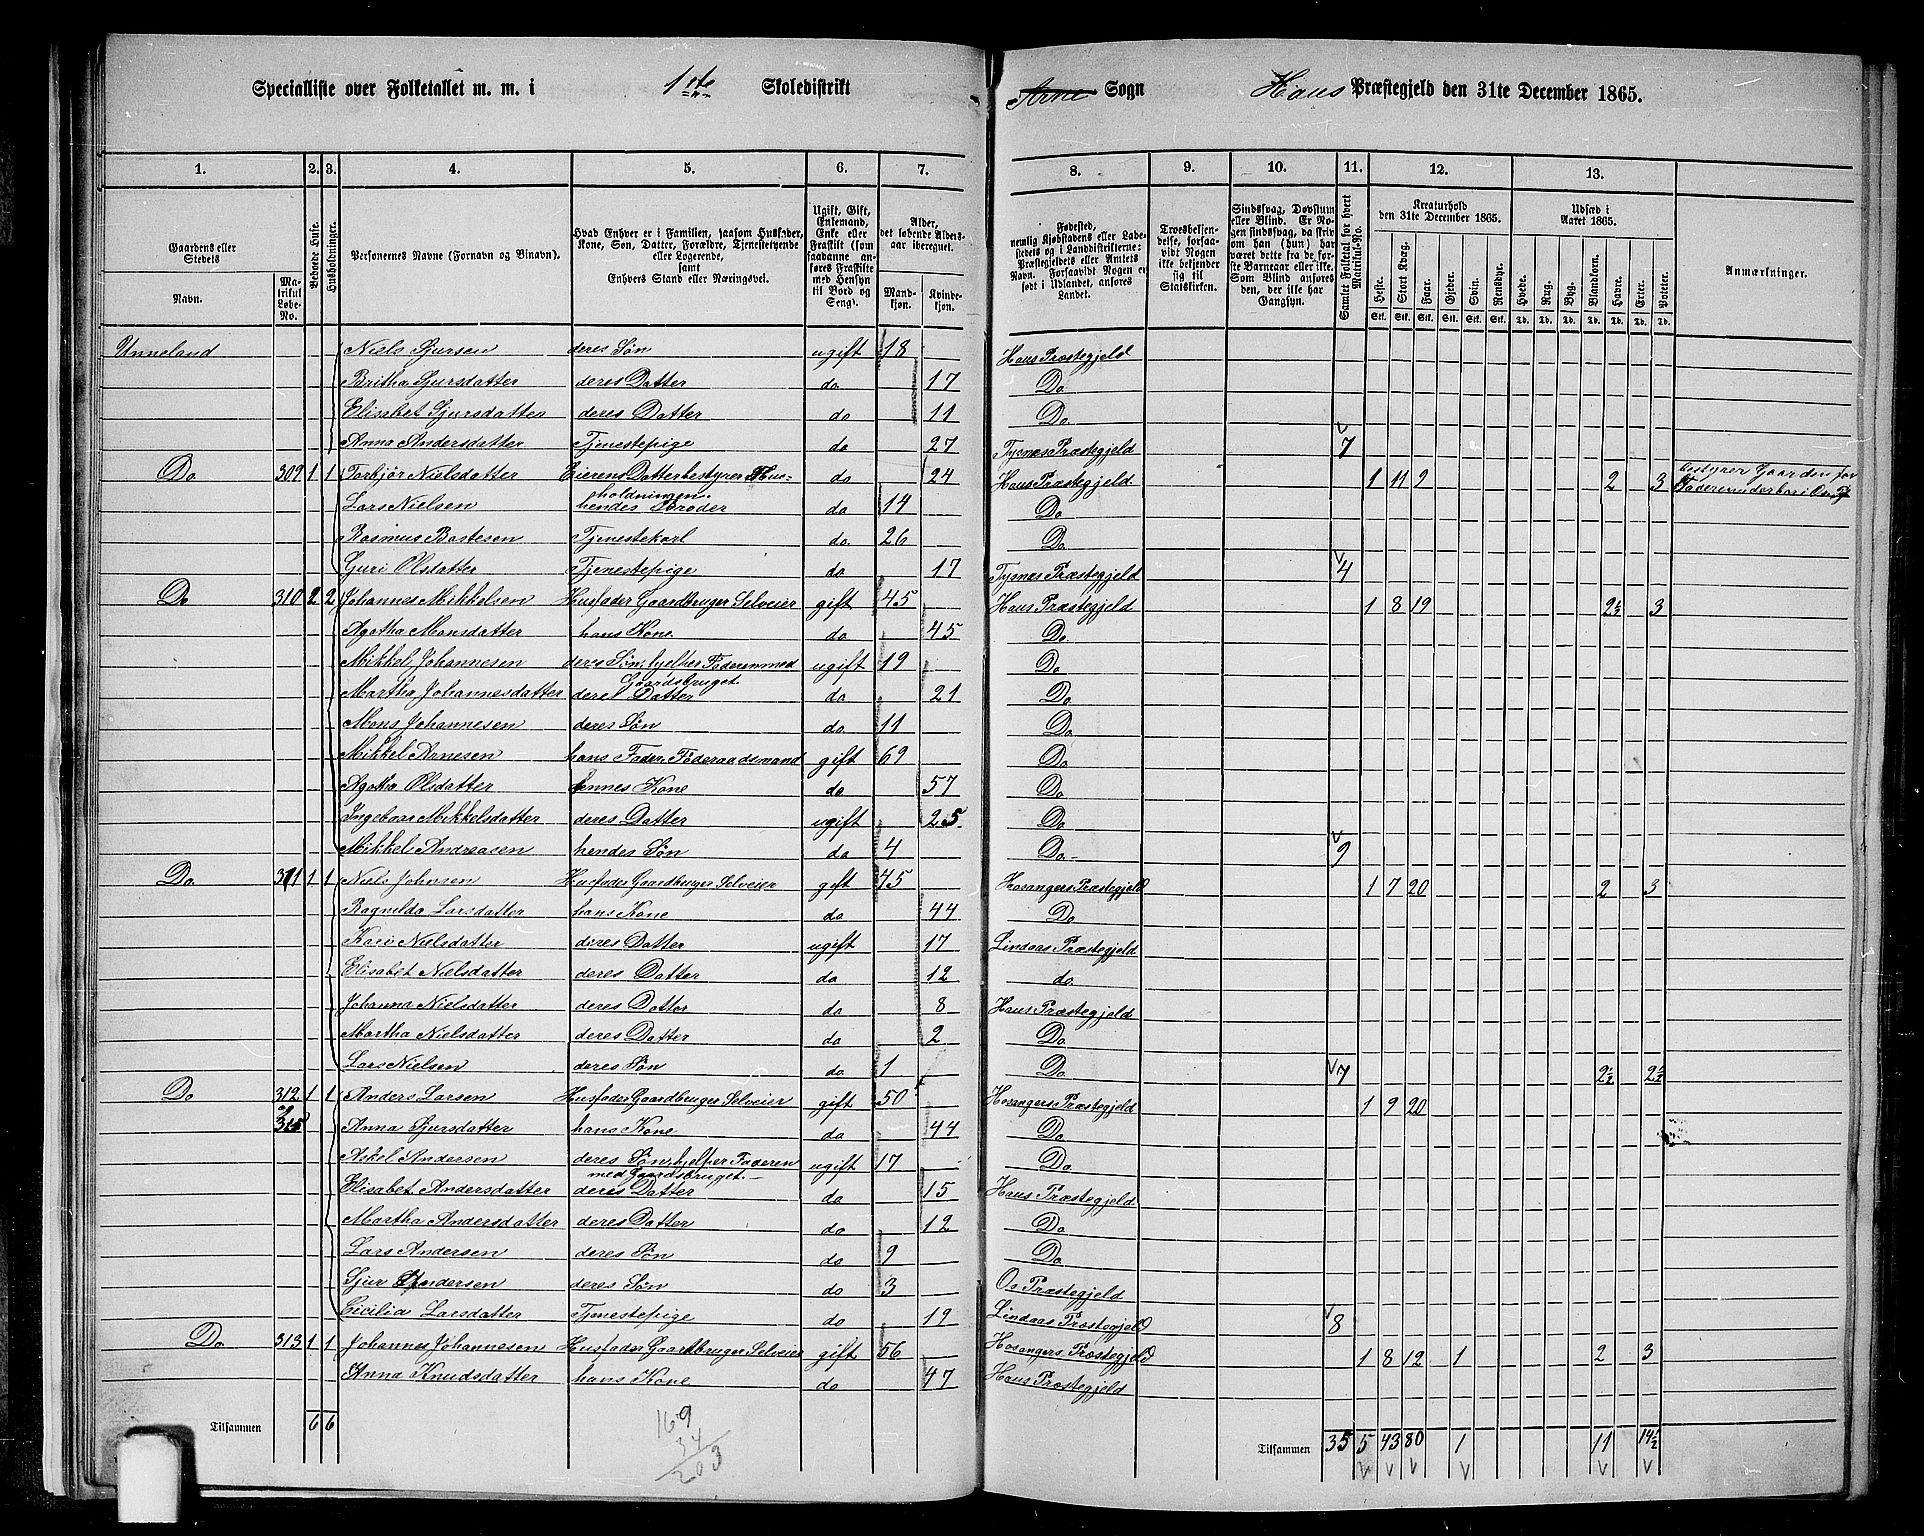 Specialliste over Folketallet m. m. i 1ste Skoledistrikt Arne Sogn Haus Præstegjeld den 31te December 1865.
1. 2. 3. 4. 5. 6. 7. 8. 9. 10. 11. 12. 13.
Gaardens eller Stedets Navn. Matrikul Løbe-No. Beboede Huse. Husholdninger. Personernes Navne (Fornavn og Binavn). Hvad Enhver er i Familien, saasom Husfader, Kone, Søn, Datter, Forældre, Tjenestetyende eller Logerende, samt Enhvers Stand eller Næringsvei. Ugift, Gift, Enkemand, Enke eller Fraskilt (som saadanne anføres Fraskilte med Hensyn til Bord og Seng). Alder, det løbende Aldersaar iberegnet. Mandkjøn. Kvindekjøn.
Fødested, nemlig Kjøbstadens eller Ladestedets og i Landdistrikterne: Præstegjeldets eller Amtets Navn. Forsaavidt Nogen er født i Udlandet, anføres Landet. Troesbekjendelse, forsaavidt Nogen ikke bekjender sig til Statskirken. Sindssvag, Døvstum eller Blind. Er Nogen sindssvag, da skriv om han (hun) har været dette fra de første Barneaar eller ikke. Som Blind anføres den, der ikke har Gangsyn. Samlet Folketal for hvert Matrikul-No. Kreaturhold den 31te December 1865. Heste. Stort Kvæg. Faar. Gjeder. Svin. Rensdyr. Udsæd i Aaret 1865. Hvede. Rug. Byg. Blandkorn. Havre. Erter. Poteter. Anmærkninger.
Stk. Stk. Stk. Stk. Stk. Stk. Td. Td. Td. Td. Td. Td. Td.
Unneland Niels Sjursen deres Søn ugift 18 Haus Præstegjeld
Britha Sjursdatter deres Datter do 17 Do
Elisabet Sjursdatter deres Datter do 11 Do
Anna Andersdatter Tjenestepige do 27 Tysnes Præstegjeld 7
Do 309 1 1 Torbjør Nielsdatter Eierens Datter bestyrer Husholdningen. do 24 Haus Præstegjeld. 1 11 9 2 3 bestyrer Gaarden for
Lars Nielsen hendes Broder do 14 Do
Rasmus Bastesen Tjenestekarl do 26 Do
Guri Olsdatter Tjenestepige do 17 Tysnes Præstegjeld 4
Do 310 2 2 Johannes Mikkelsen Husfader Gaardbruger Selveier gift 45 Haus Præstegjeld 1 8 19 2½ 3
Agatha Monsdatter hans Kone do 45 Do
Mikkel Johannesen deres Søn, hjelper Faderen med Gaardsbruget. ugift 19 Do
Martha Johannesdatter deres Datter do 21 Do
Mons Johannesen deres Søn do 11 Do
Mikkel Arnesen hans Fader, Føderaadsmand gift 69 Do
Agatha Olsdatter hennes Kone do 57 Do
Ingeboar Mikkelsdatter deres Datter ugift 25 Do
Mikkel Andreasen hendes Søn do 4 Do 9
Do 311 1 1 Niels Johnsen Husfader Gaardbruger Selveier gift 45 Hosangers Præstegjeld 1 7 20 2 3
Ragnilda Larsdatter hans Kone do 44 Do
Kari Nielsdatter deres Datter ugift 17 Lindaas Præstegjeld
Elisabet Nielsdatter deres Datter do 12 do.
Johanna Nielsdatter deres Datter do 8 Haus Præstegjeld
Martha Nielsdatter deres Datter do 2 Do
Lars Nielsen deres Søn do 1 Do 7 2½ 2½
Do 312 1 1 Anders Larsen Husfader Gaardbruger Selveier gift 50 Hosangers Præstegjeld 1 9 20
og 315 Anna Sjursdatter hans Kone do 44 Do
Askel Andersen deres Søn, hjelper Faderen med Gaardsbruget. ugift 17 Do
Elisabet Andersdatter deres Datter do 15 Haus Præstegjeld
Martha Andersdatter deres Datter do 12 Do
Lars Andersen deres Søn do 9 Do
Sjur Andersen deres Søn do 3 Os Præstegjeld
Cicilia Larsdatter Tjenestepige do 19 Lindaas Præstegjeld 8
Do 313 1 1 Johannes Johannesen Husfader Gaardbruger Selveier gift 56 Hosangers Præstegjeld 1 8 12 1 2 3
Anna Knudsdatter hans Kone do 47 Haus Præstegjeld
Tilsammen 6 6 Tilsammen 35 5 43 80 1 11 14½
169
34
203